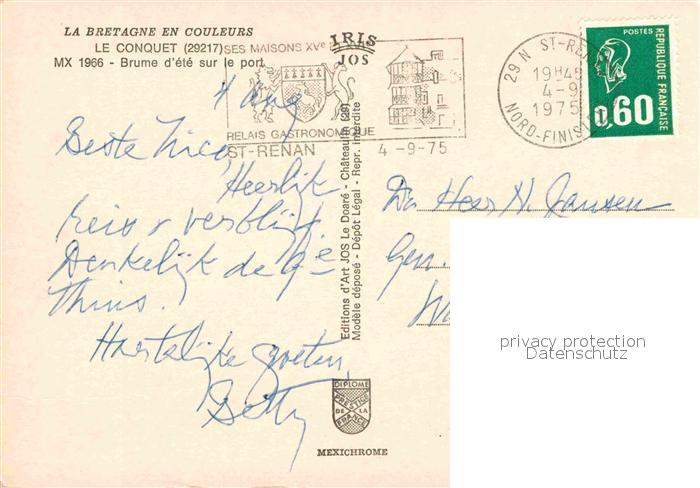 LA BRETAGNE EN COULEURS
LE CONQUET (29217)
MX 1966 - Brume d'été sur le port
SES MAISONS XVe
IRIS
JOS
RELAIS GASTRONOMIQUE
ST-RENAN
4 -9-75
29 N ST-RE
19H45
4-9
1975
NORD-FINIST
POSTES
REPUBLIQUE FRANÇAISE
0,60
Beste
Heerlijk
reis + verblijf
de
Thuis.
Hartelijke groeten,
Betty
Editions d'Art JOS Le Doaré - Châteaulin (29)
Modèle déposé - Dépôt Légal - Repr. interdite
Heer N. Jansen
Gen.
privacy protection
Datenschutz
DIPLOME
PRESTIGE
DE LA
FRANCE
MEXICHROME